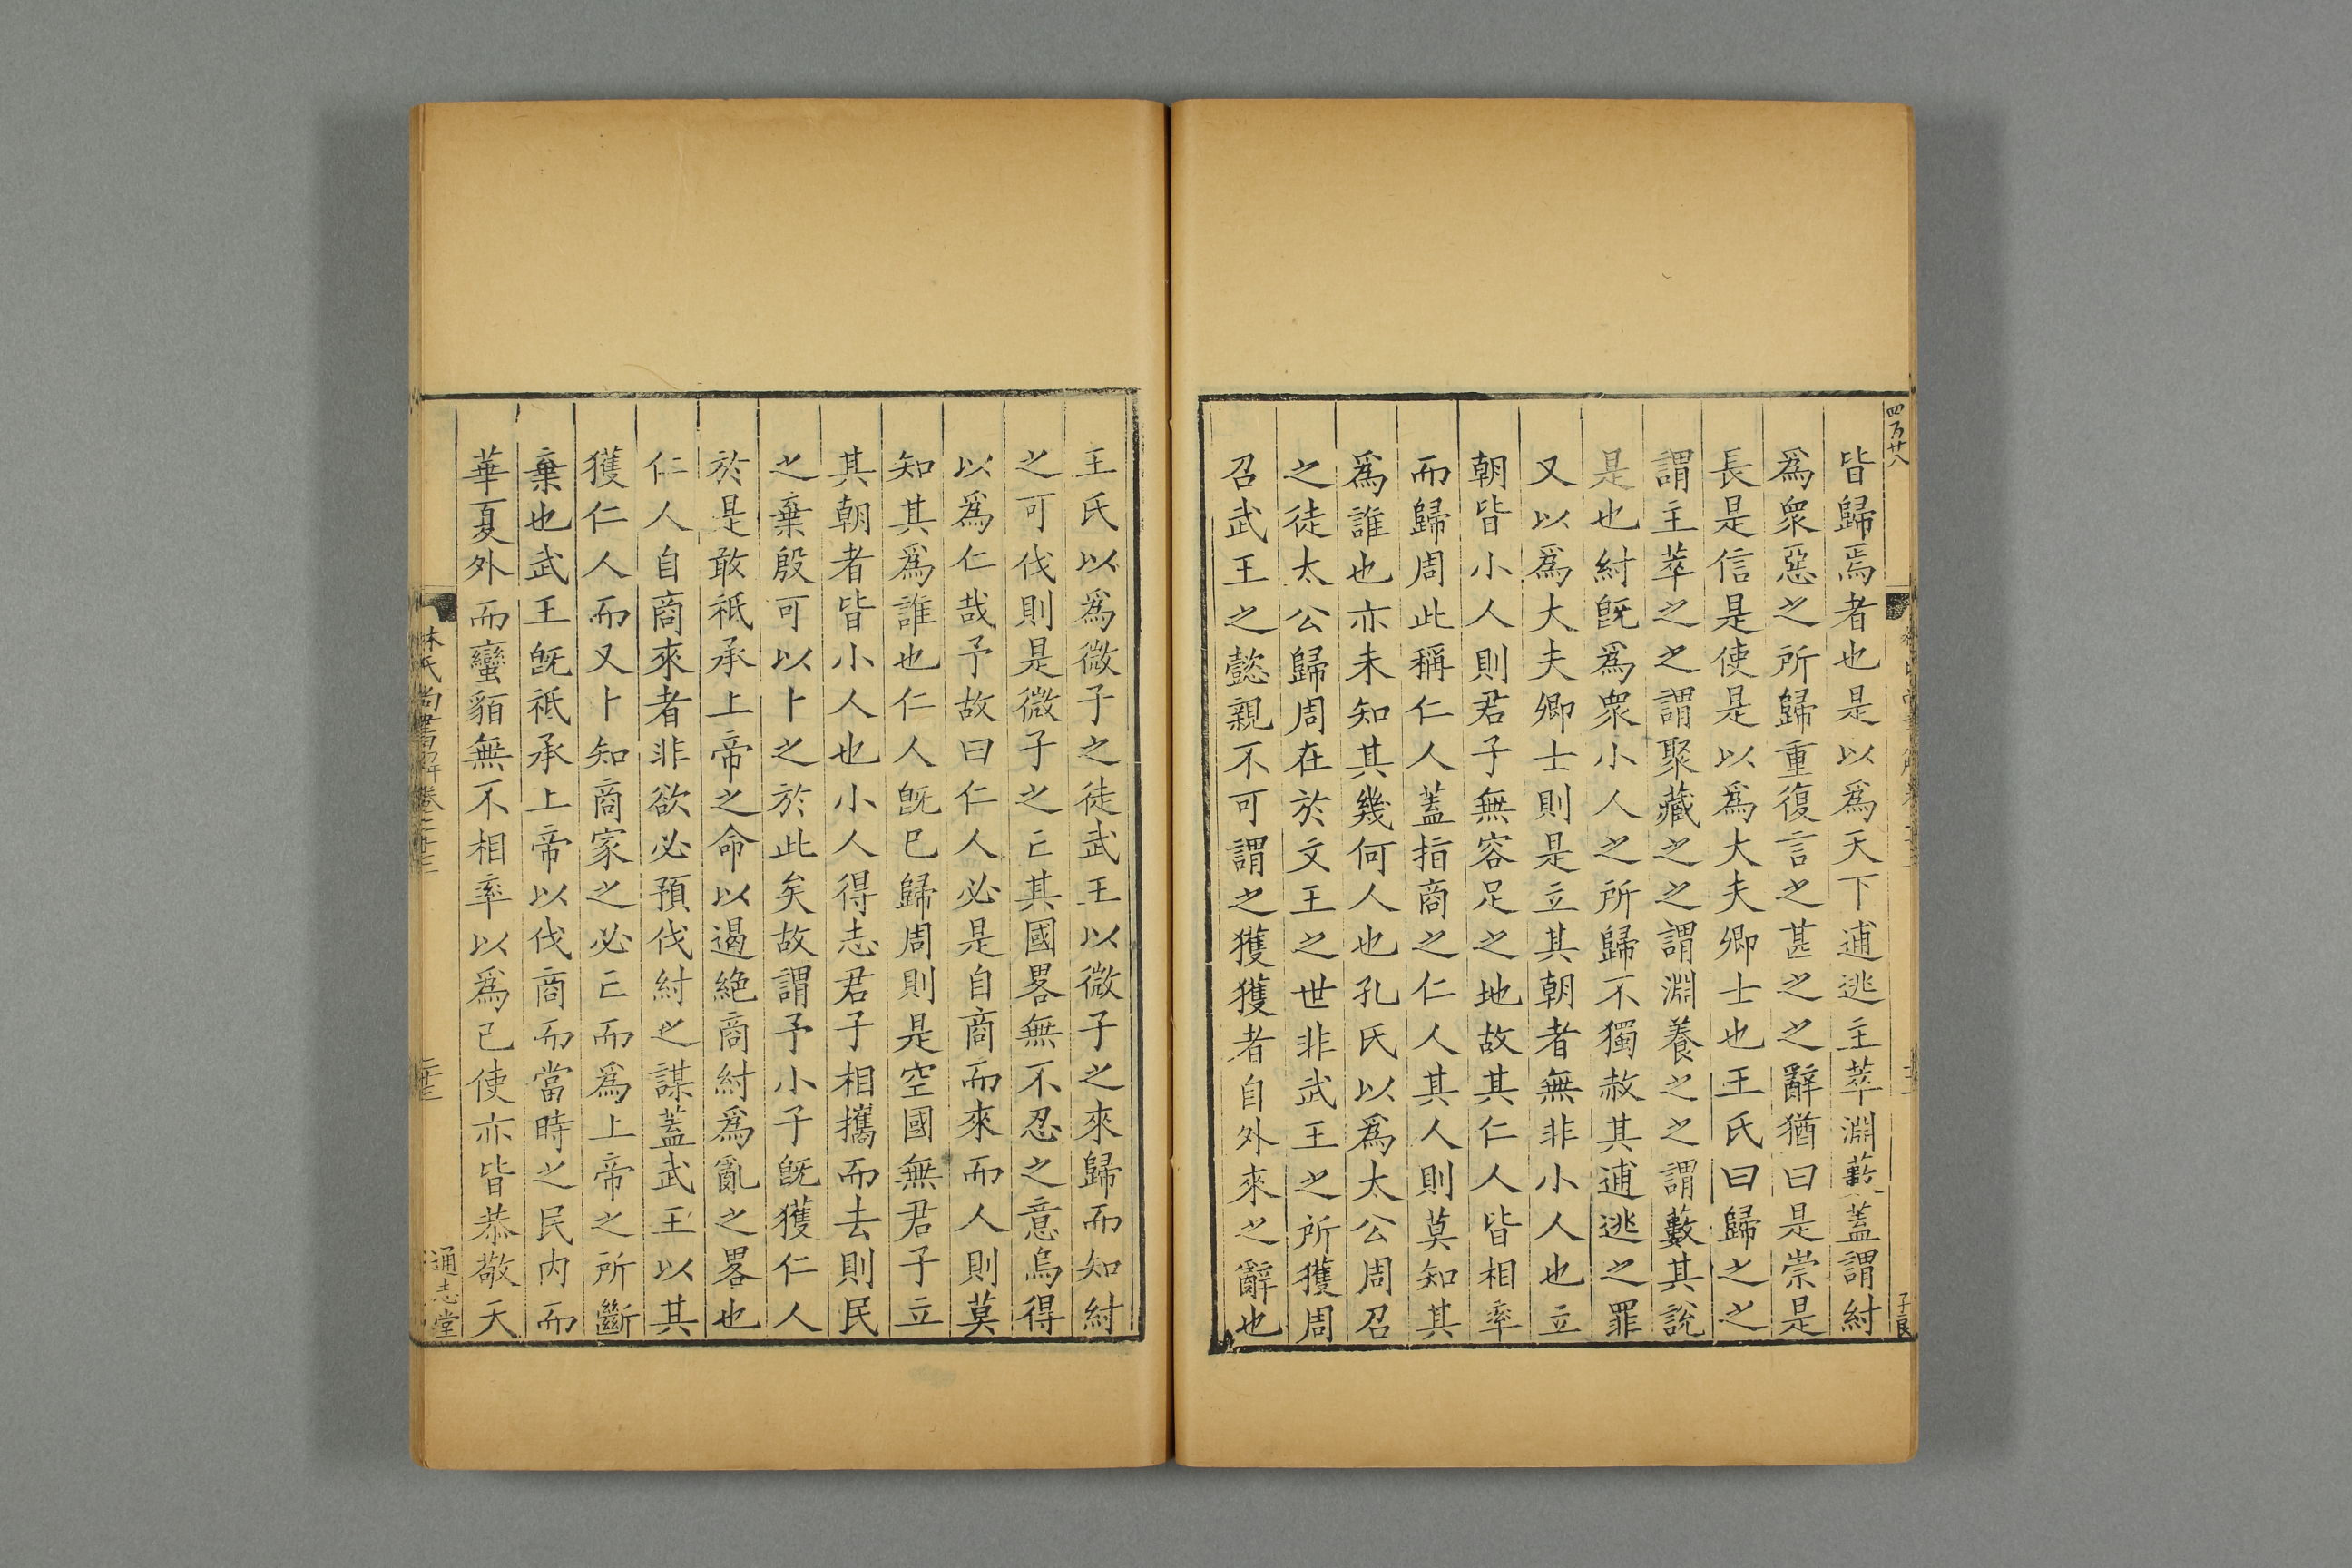 四万廿八
皆歸焉者也是以爲天下逋逃主萃淵藪蓋謂紂
爲衆惡之所歸重復言之甚之之辭猶曰是崇是
長是信是使是以爲大夫卿士也王氏曰歸之之
謂主萃之之謂聚藏之之謂淵養之之謂藪其說
是也紂旣爲衆小人之所歸不獨赦其逋逃之罪
又以爲大夫卿士則是立其朝者無非小人也立
朝皆小人則君子無容足之地故其仁人皆相率
而歸周此稱仁人蓋指商之仁人其人則莫知其
爲誰也亦未知其幾何人也孔氏以爲太公周召
之徒太公歸周在於文王之世非武王之所獲周
召武王之懿親不可謂之獲獲者自外來之辭也
王氏以爲微子之徒武王以微子之來歸而知紂
之可伐則是微子之亡其國畧無不忍之意烏得
以爲仁哉予故曰仁人必是自商而來而人則莫
知其爲誰也仁人旣已歸周則是空國無君子立
其朝者皆小人也小人得志君子相攜而去則民
之棄殷可以卜之於此矣故謂予小子旣獲仁人
於是敢祗承上帝之命以遏絶商紂爲亂之畧也
仁人自商來者非欲必預伐紂之謀蓋武王以其
獲仁人而又卜知商家之必亡而爲上帝之所斷
棄也武王旣祗承上帝以伐商而當時之民内而
華夏外而蠻貊無不相率以爲已使亦皆恭敬天
林氏尚書解卷二十三
通志堂